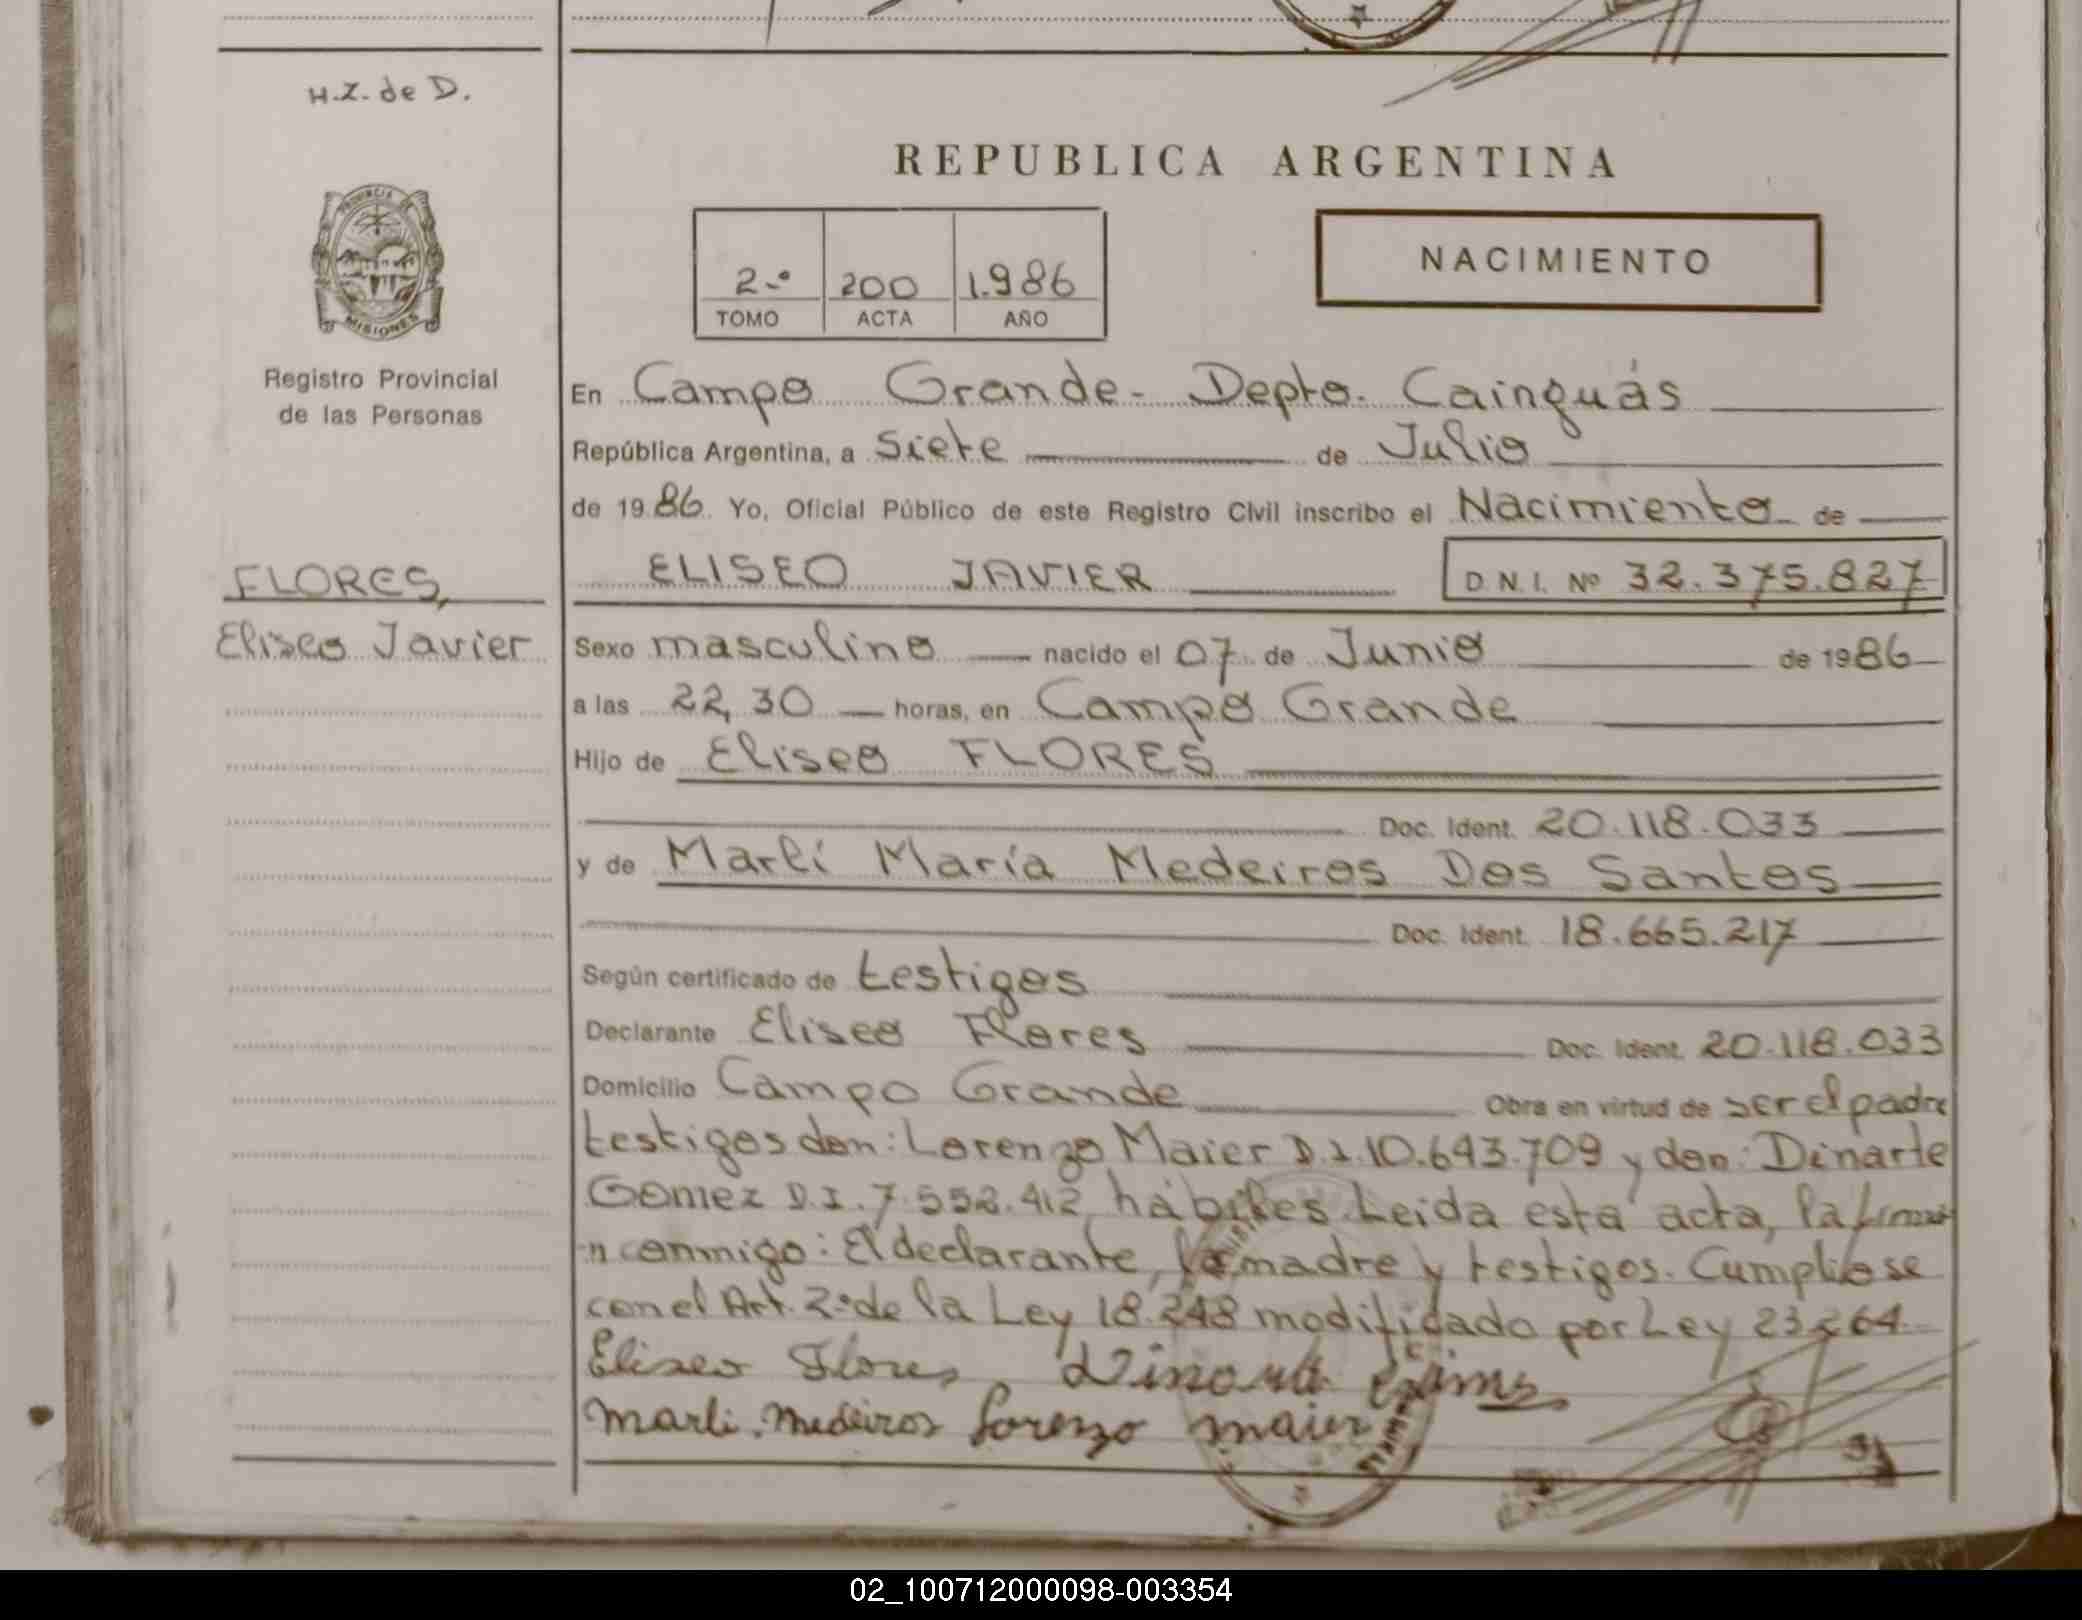 H.Z. de D.
PROVINCIA DE
MISIONES
Registro Provincial
de las Personas
FLORES,
Eliseo Javier
REPUBLICA ARGENTINA
2.º 200 1.986
TOMO ACTA AÑO
NACIMIENTO
En Campo Grande - Depto. Cainguás
República Argentina, a Siete de Julio
de 1986. Yo, Oficial Público de este Registro Civil inscribo el Nacimiento de
ELISEO JAVIER D.N.I. Nº 32.375.827
Sexo masculino nacido el 07 de Junio de 1986
a las 22,30 horas, en Campo Grande
Hijo de Eliseo FLORES
Doc. Ident. 20.118.033
y de Marlí María Medeiros Dos Santos
Doc. Ident. 18.665.217
Según certificado de testigos
Declarante Eliseo Flores Doc. Ident. 20.118.033
Domicilio Campo Grande Obra en virtud de ser el padre
testigos don: Lorenzo Maier D.I. 10.643.709 y don: Dinarte
Gomez D.I. 7.552.412, hábiles. Leida esta acta, la firma
n conmigo: El declarante, la madre y testigos. Cumpliose
con el Art. 2º de la Ley 18.248 modificado por Ley 23.264.
Eliseo Flores
Marli. Medeiros Lorenzo maier
02_100712000098-003354